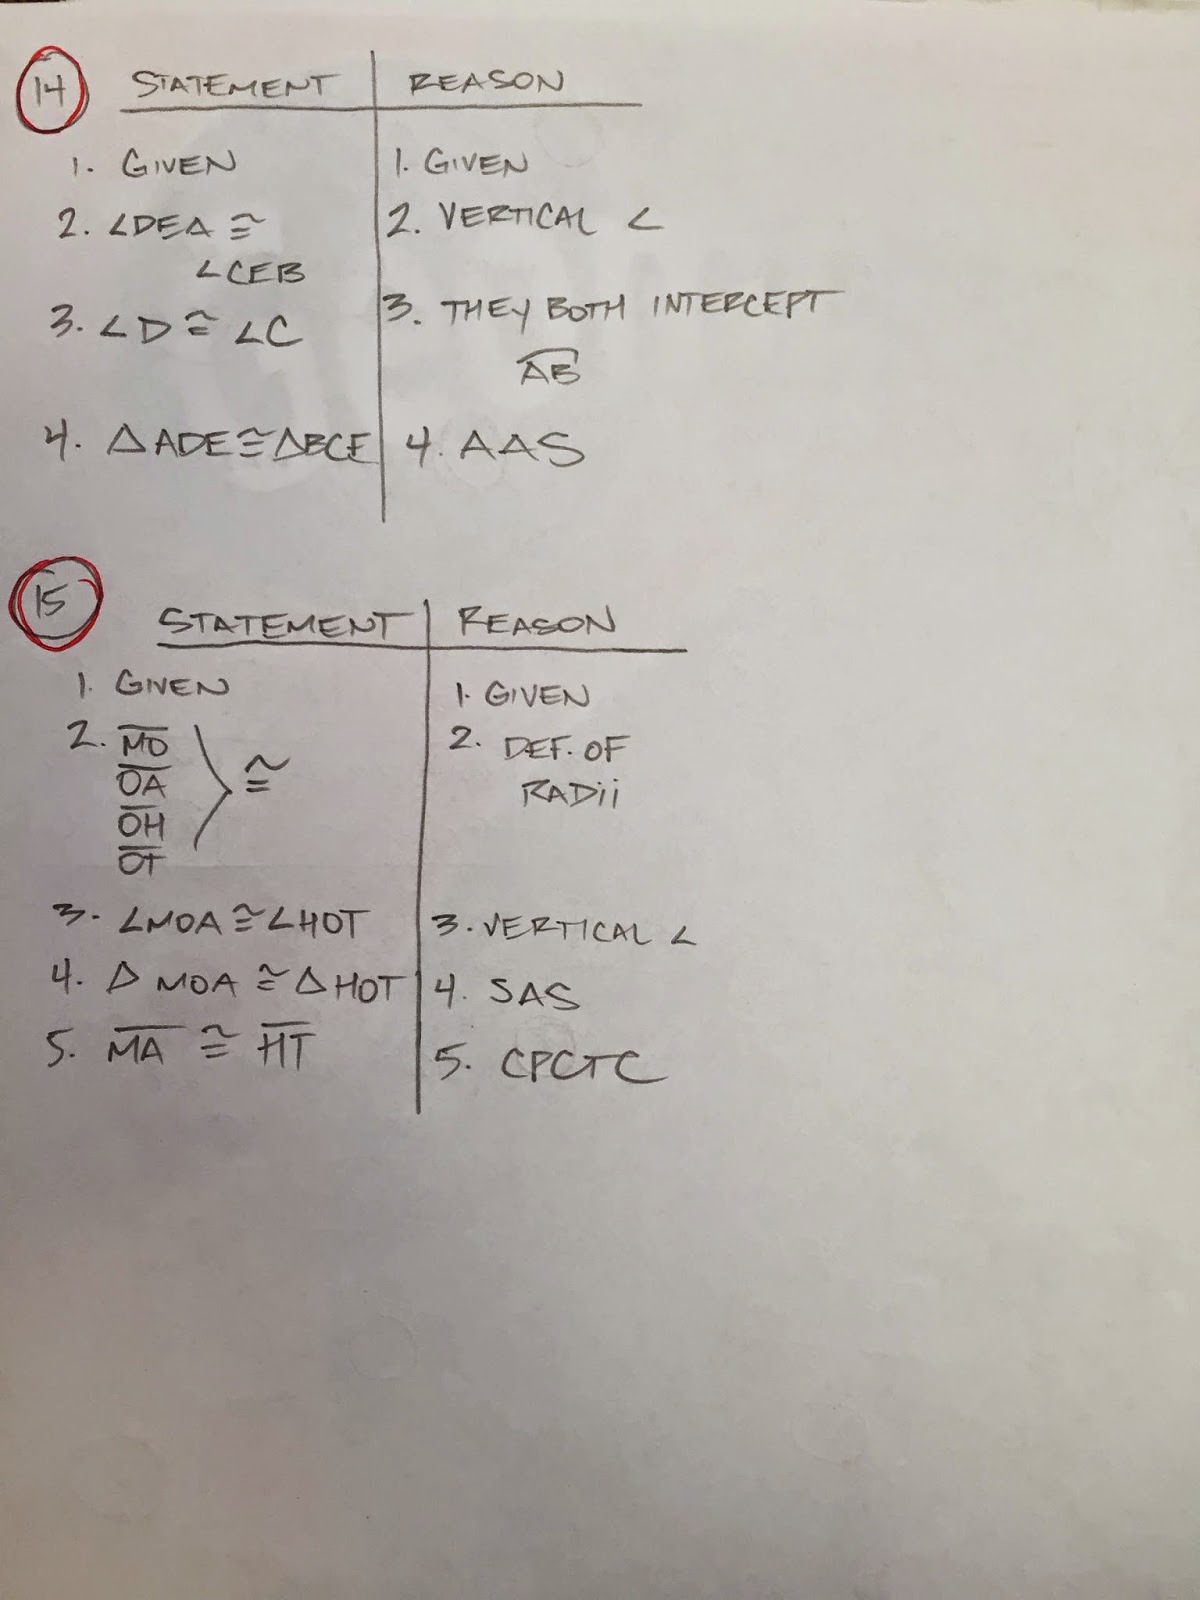 14
STATEMENT | REASON
1. GIVEN | 1. GIVEN
2. ∠DEA ≅ | 2. VERTICAL ∠
∠CEB
3. ∠D ≅ ∠C | 3. THEY BOTH INTERCEPT
A͡B
4. △ADE ≅ △BCE | 4. AAS
15
STATEMENT | REASON
1. GIVEN | 1. GIVEN
2. M̅O̅ | 2. DEF. OF
O̅A̅ > ≅ RADii
O̅H̅
O̅T̅
3. ∠MOA ≅ ∠HOT | 3. VERTICAL ∠
4. △ MOA ≅ △ HOT | 4. SAS
5. M̅A̅ ≅ H̅T̅ | 5. CPCTC